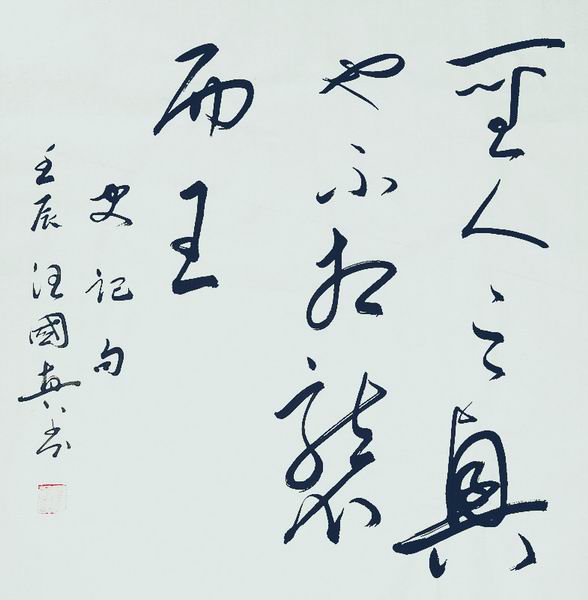 聖人之興
也不相襲
而王
史記句
壬辰 汪國真書